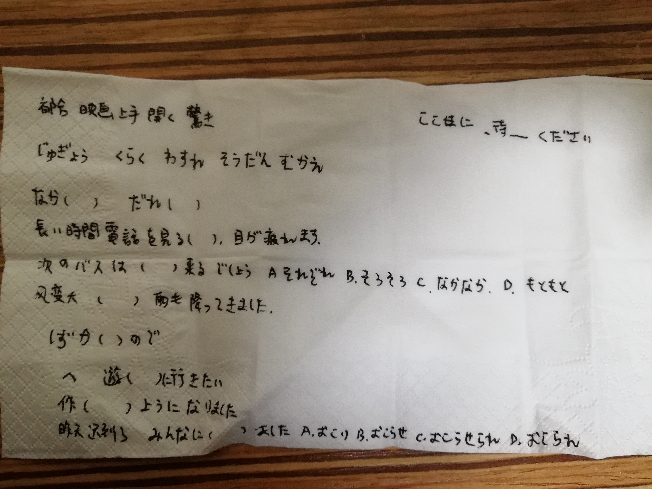 都合 映画 上手 開く 驚き
ここ に 待 ください
じゅぎょう くらく わすれ そうだん むかえ
なか( ) だれ( )
長い時間電話を見る( )、目が疲れます。
次のバスは( )来るでしょう A それぞれ B. そろそろ C. なかなか. D. もともと
風变大 ( ) 雨も降ってきました.
しずか( )ので
へ 遊( )に行きたい
作( )ようになりました
昨天 迟到了 みんなに( )ました A. おこり B. おこらせ C. おこらせられ D. おこられ